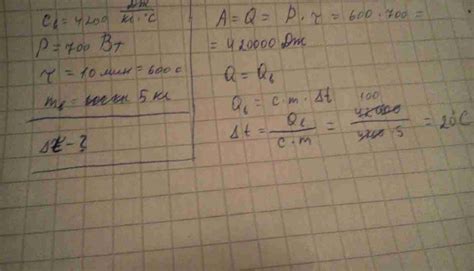 Cв = 4200 Дж/кг·°C
P = 700 Вт
τ = 10 мин = 600 с
mв = 5 кг
Δt - ?
A = Q = P · τ = 600 · 700 =
= 420000 Дж
Q = Qв
Qв = c · m · Δt
Δt = Qв / c · m = 100 42000 / 4200 · 5 = 20°C